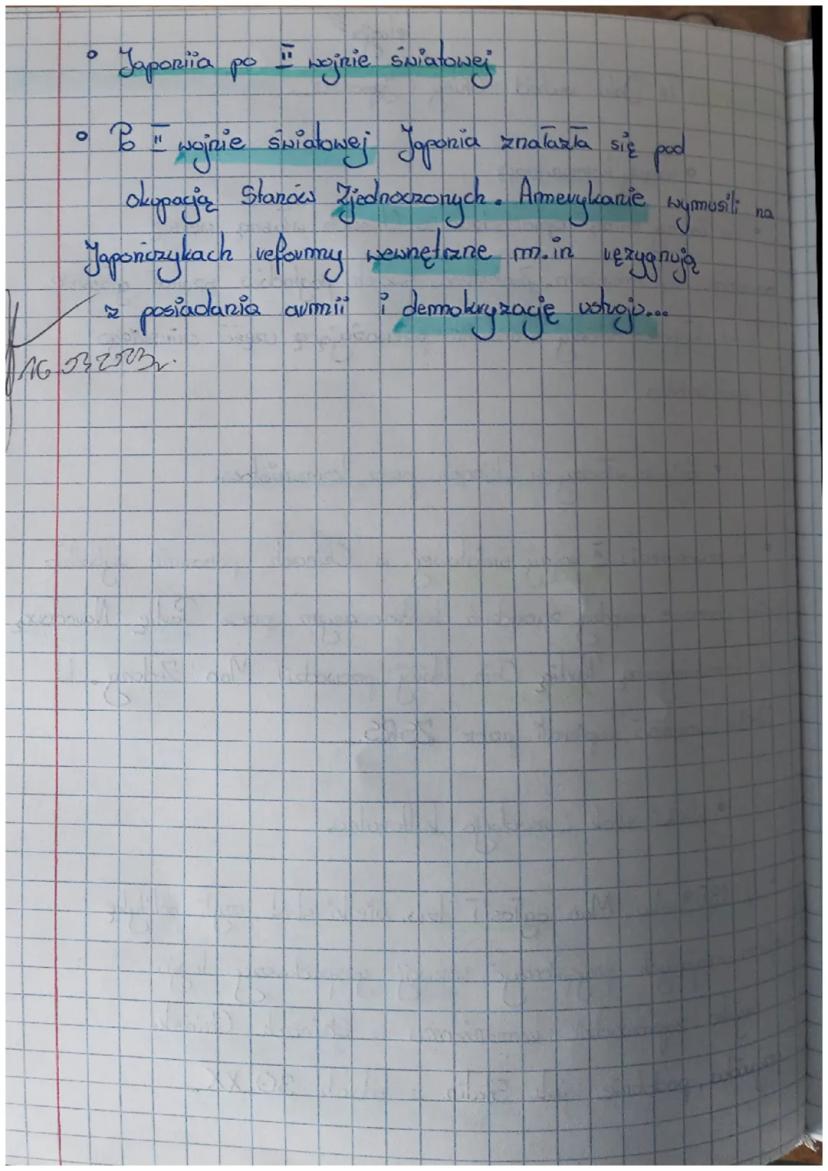 ° Japoniia po II wojnie światowej
° Po II wojnie światowej Japonia znalazła się pod
okupacją Stanów Zjednoczonych. Amerykanie wymusili na
Japończykach reformy wewnętrzne m.in rezygnują
z posiadania armii i demokryzację ustroju...
16.03.2023r.